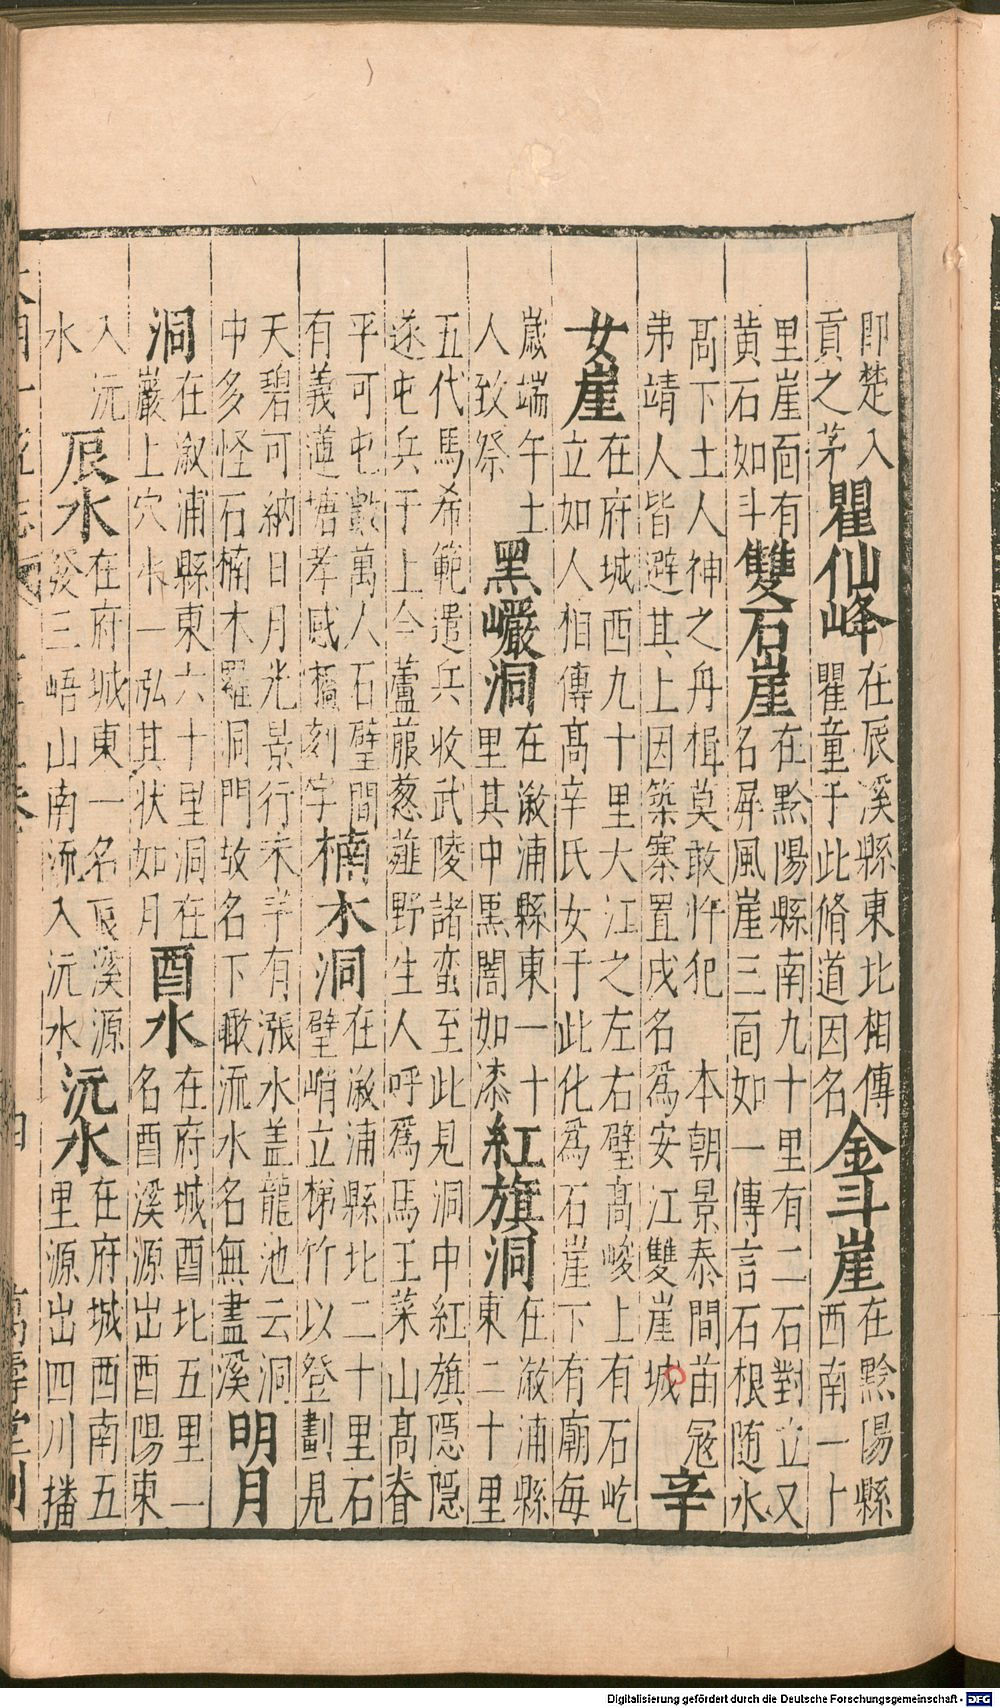 即楚入貢之茅瞿仙峰在辰溪縣東北相傳瞿童于此脩道因名金斗崖在黔陽縣西南一十
里崖面有黄石如斗雙石崖在黔陽縣南九十里有二石對立又名屏風崖三面如一傳言石根随水
髙下土人神之舟楫莫敢忤犯 本朝景泰間苗冦弗靖人皆避其上因築寨置戍名爲安江雙崖城辛
女崖在府城西九十里大江之左右壁髙峻上有石屹立如人相傳髙辛氏女于此化爲石崖下有廟每
歲端午土人致祭黑巖洞在漵浦縣東一十里其中黒闇如漆紅旗洞在漵浦縣東二十里
五代馬希範遣兵收武陵諸蛮至此見洞中紅旗隱隱遂屯兵于上今蘆菔葱薤野生人呼爲馬王菜山髙脊
平可屯數萬人石壁間有義蓮塘孝感橋刻字楠木洞在漵浦縣北二十里石壁峭立梯竹以登劃見
天碧可納日月光景行未半有漲水盖龍池云洞中多怪石楠木羅洞門故名下瞰流水名無盡溪明月
洞在漵浦縣東六十里洞在巖上穴水一泓其状如月酉水在府城酉北五里一名酉溪源出酉陽東
入沅水辰水在府城東一名辰溪源發三峿山南流入沅水沅水在府城西南五里源出四川播
大明一統志 四 萬壽堂刊
Digitalisierung gefördert durch die Deutsche Forschungsgemeinschaft - DFG